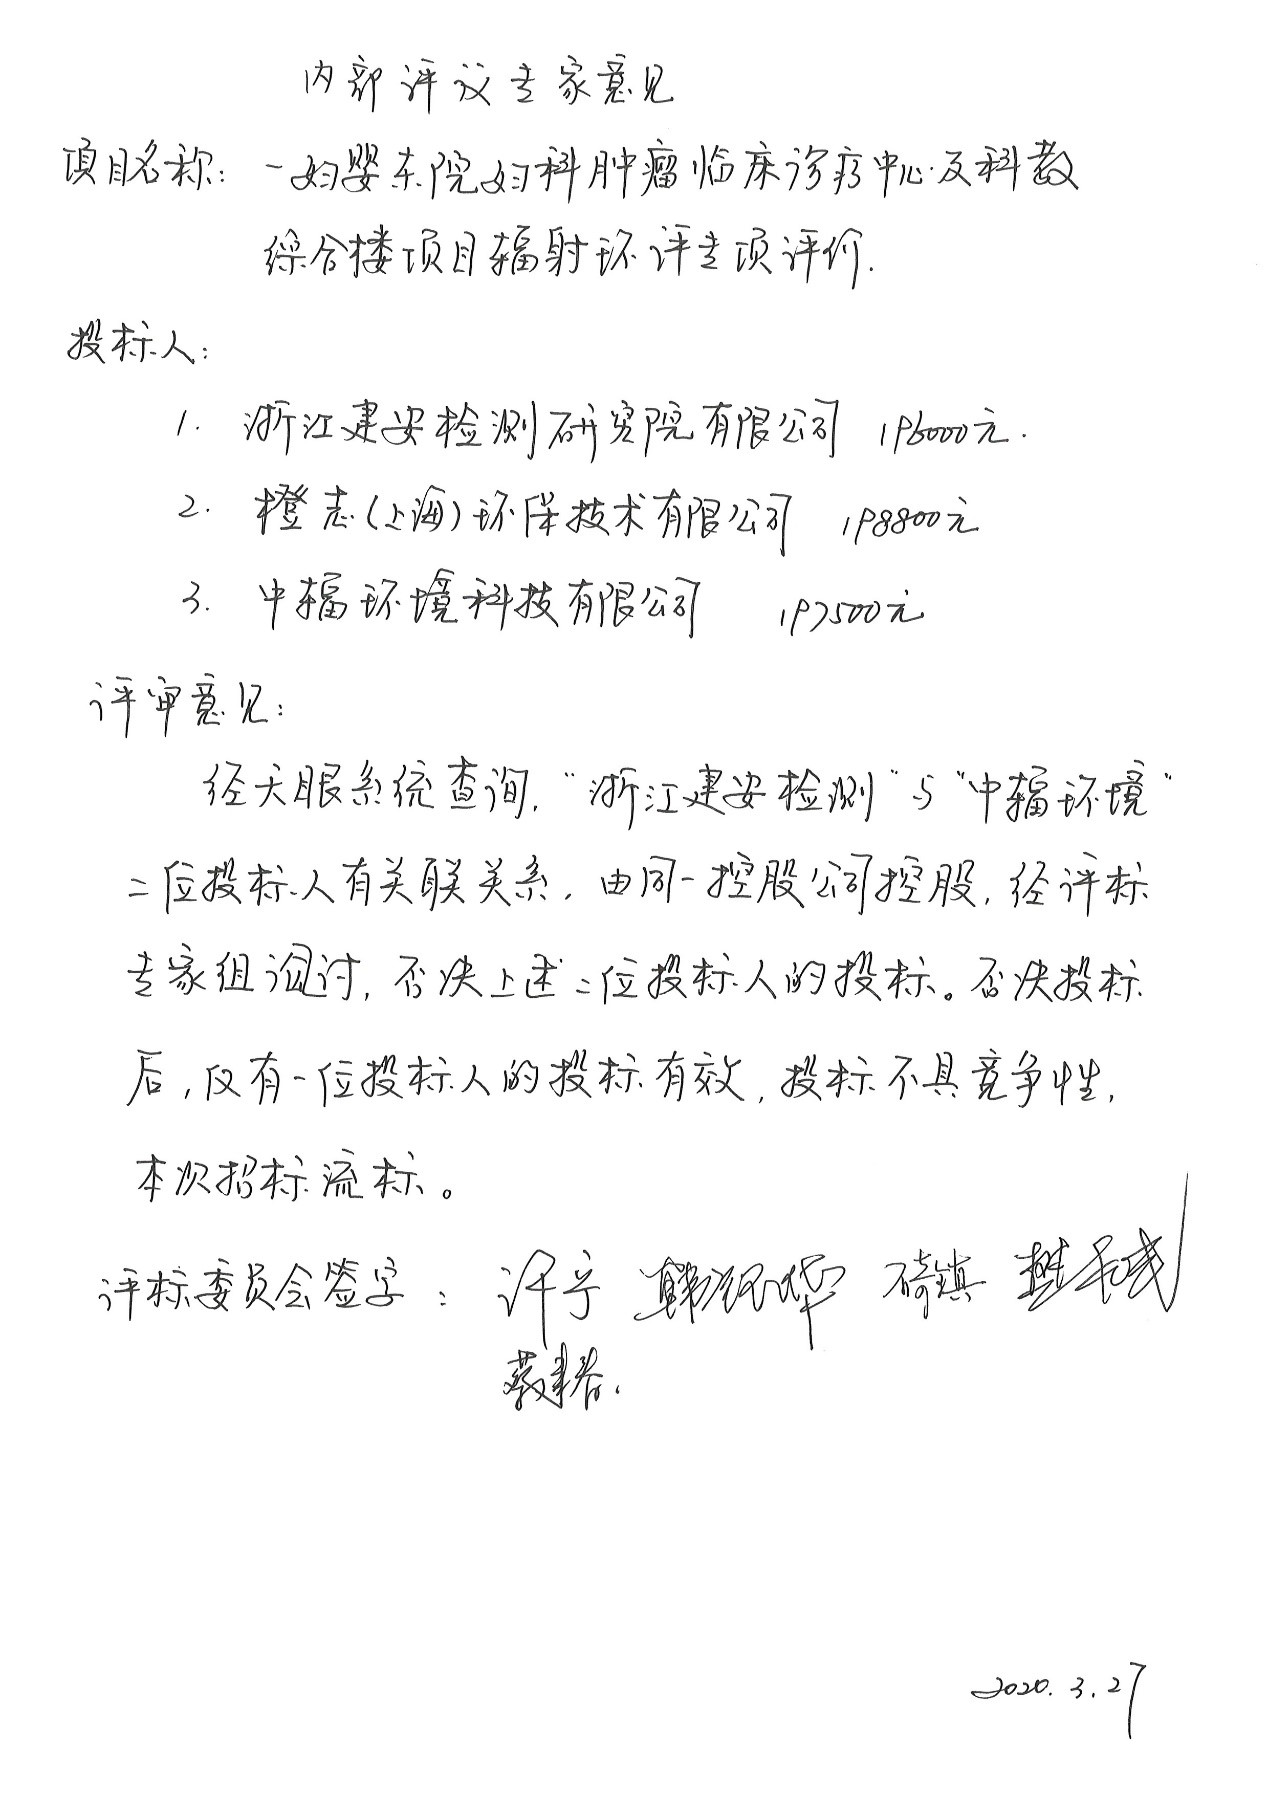 内部评议专家意见
项目名称：一妇婴东院妇科肿瘤临床诊疗中心及科教
综合楼项目辐射环评专项评价.
投标人：
1. 浙江建安检测研究院有限公司 196000元.
2. 橙志（上海）环保技术有限公司 198800元
3. 中辐环境科技有限公司 197500元
评审意见：
经天眼系统查询，“浙江建安检测”与“中辐环境”
二位投标人有关联关系，由同一控股公司控股，经评标
专家组讨，否决上述二位投标人的投标。否决投标
后，仅有一位投标人的投标有效，投标不具竞争性，
本次招标流标。
评标委员会签字：许宁
2020.3.27